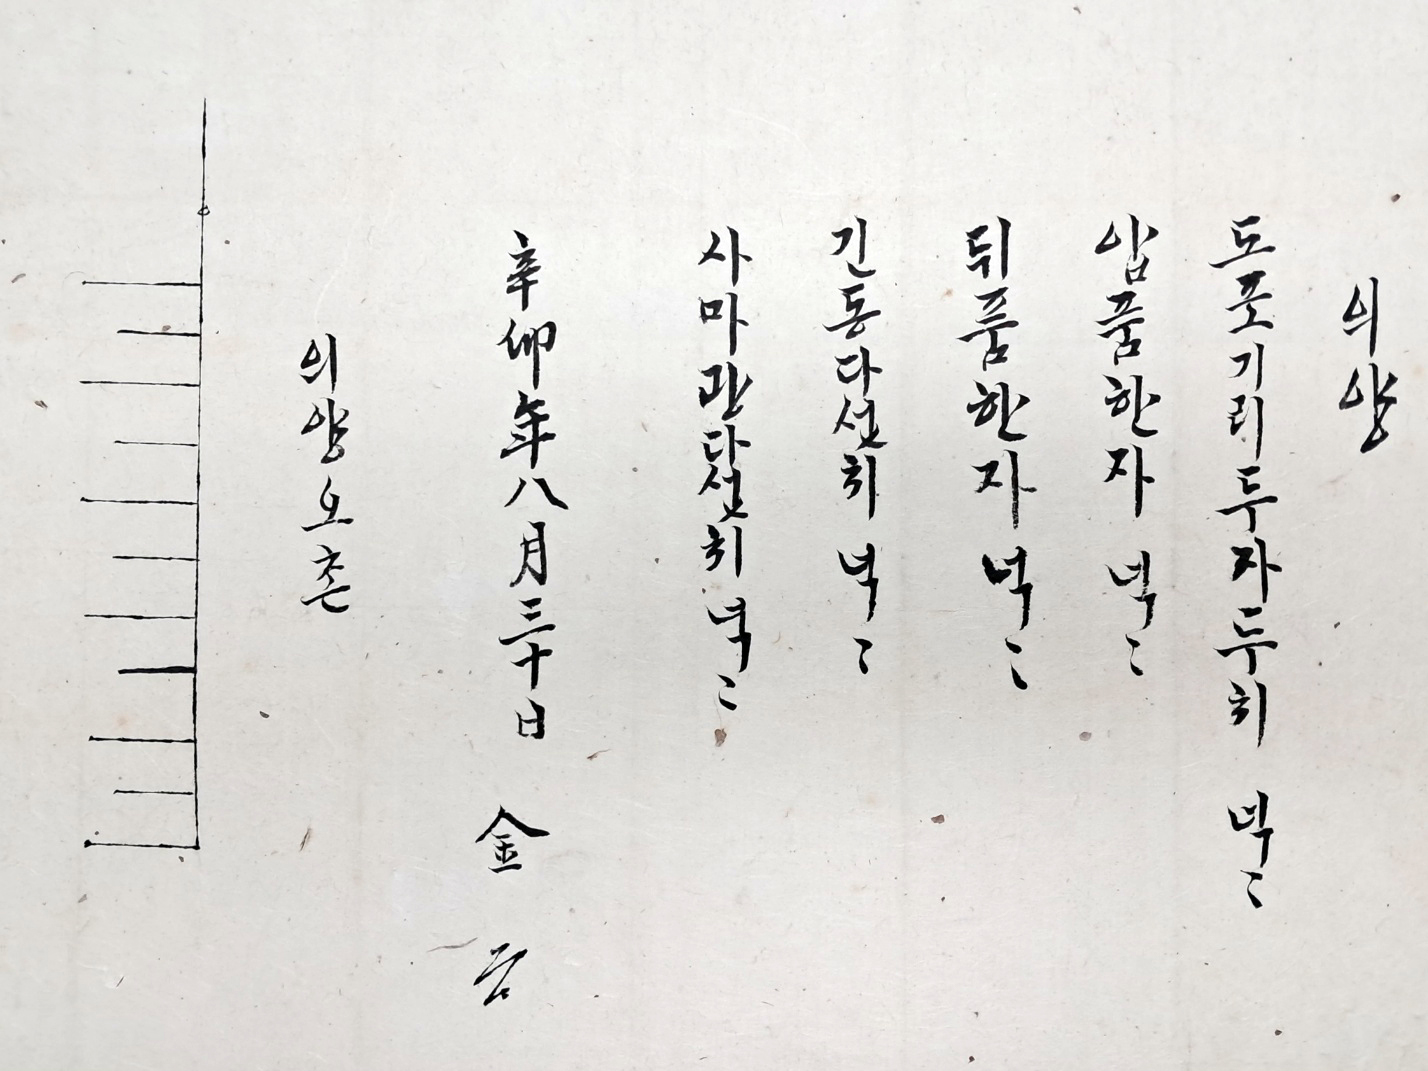 의양
도포기리두자두치 넉〻
압품한자 넉〻
뒤품한자 넉〻
긴동다섯치 넉〻
사마관다섯치 넉〻
辛卯年八月三十日 金
의양오촌